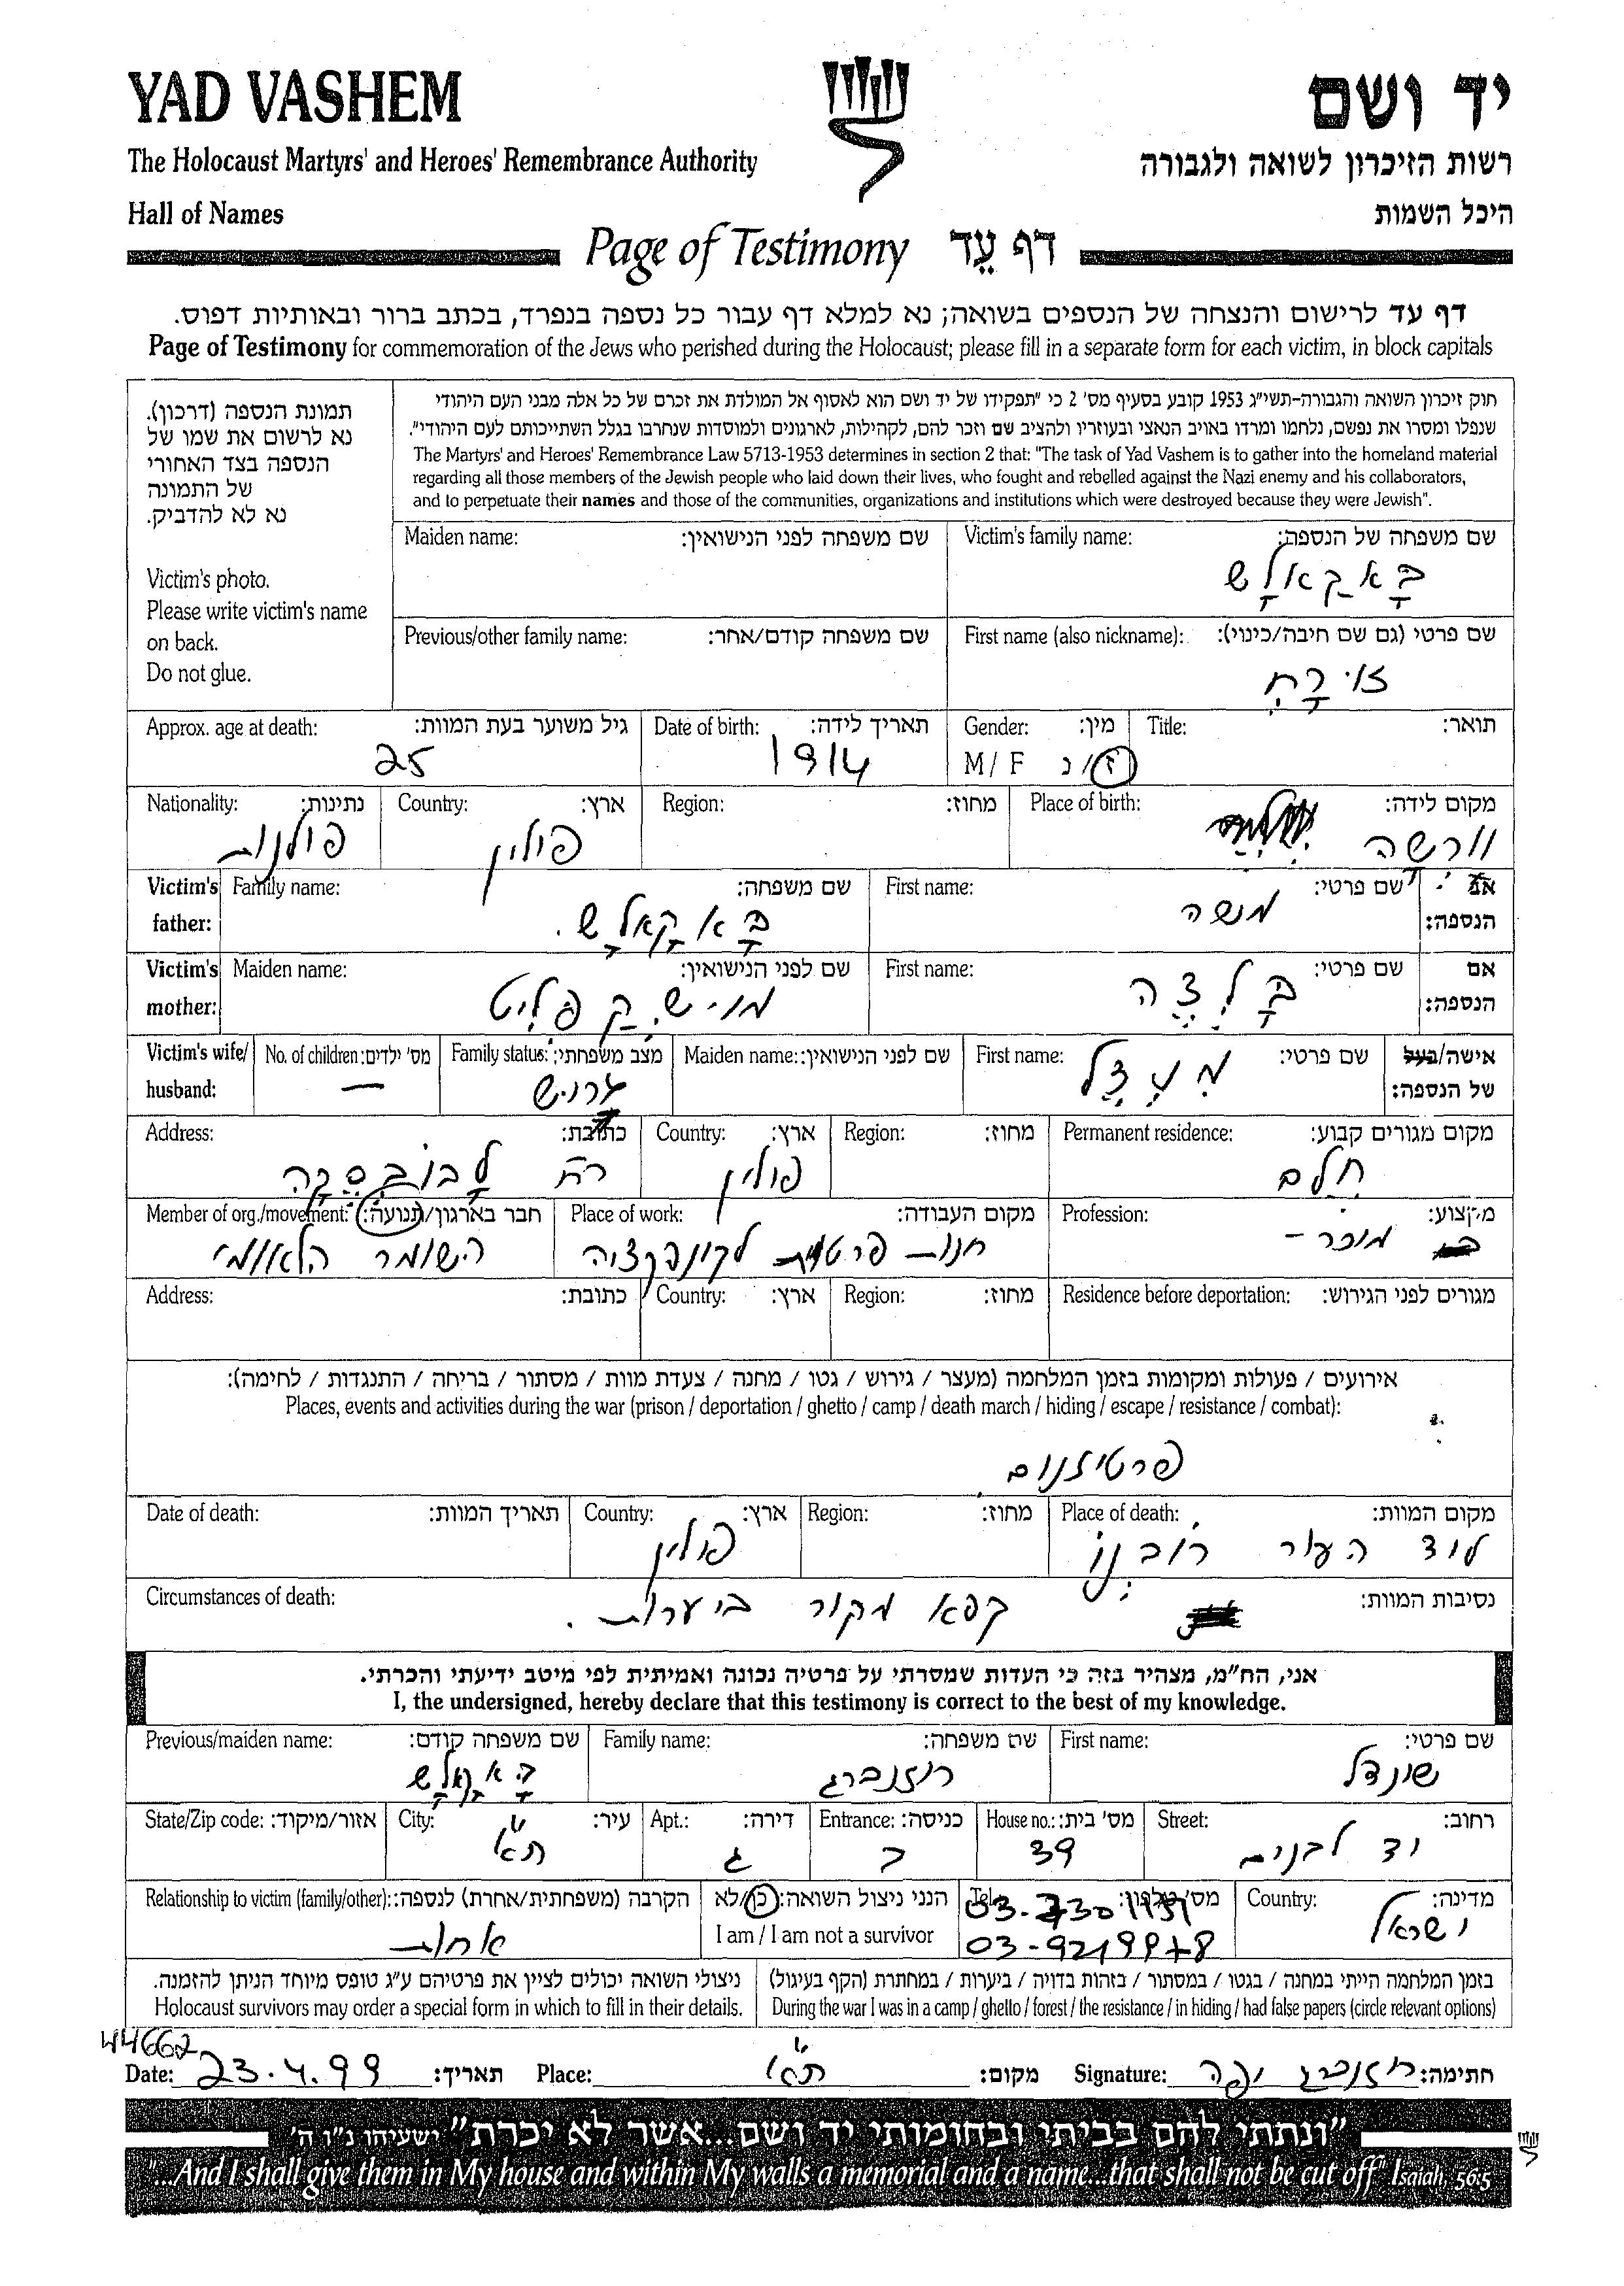 YAD VASHEM
יד ושם
The Holocaust Martyrs' and Heroes' Remembrance Authority
רשות הזיכרון לשואה ולגבורה
Hall of Names
היכל השמות
Page of Testimony דף עֵד
דף עד לרישום והנצחה של הנספים בשואה; נא למלא דף עבור כל נספה בנפרד, בכתב ברור ובאותיות דפוס.
Page of Testimony for commemoration of the Jews who perished during the Holocaust; please fill in a separate form for each victim, in block capitals
תמונת הנספה (דרכון).
נא לרשום את שמו של
הנספה בצד האחורי
של התמונה
נא לא להדביק.
Victim's photo.
Please write victim's name
on back.
Do not glue.
חוק זיכרון השואה והגבורה-תשי"ג 1953 קובע בסעיף מס' 2 כי "תפקידו של יד ושם הוא לאסוף אל המולדת את זכרם של כל אלה מבני העם היהודי
שנפלו ומסרו את נפשם, נלחמו ומרדו באויב הנאצי ובעוזריו ולהציב שם וזכר להם, לקהילות, לארגונים ולמוסדות שנחרבו בגלל השתייכותם לעם היהודי".
The Martyrs' and Heroes' Remembrance Law 5713-1953 determines in section 2 that: "The task of Yad Vashem is to gather into the homeland material
regarding all those members of the Jewish people who laid down their lives, who fought and rebelled against the Nazi enemy and his collaborators,
and to perpetuate their names and those of the communities, organizations and institutions which were destroyed because they were Jewish".
Maiden name: שם משפחה לפני הנישואין: Victim's family name: שם משפחה של הנספה:
בָּאקאלָש
Previous/other family name: שם משפחה קודם/אחר: First name (also nickname): שם פרטי (גם שם חיבה/כינוי):
Approx. age at death: גיל משוער בעת המוות: Date of birth: תאריך לידה: Gender: מין: Title: תואר:
25 1914 M / F ז/נ
Nationality: נתינות: Country: ארץ: Region: מחוז: Place of birth: מקום לידה:
פולנית פולין וורשה
Victim's father: Family name: שם משפחה: First name: שם פרטי: אב הנספה:
בָּאקָאלָש. מנשה
Victim's mother: Maiden name: שם לפני הנישואין: First name: שם פרטי: אם הנספה:
Victim's wife/ husband: No. of children: מס' ילדים: Family status: מצב משפחתי: Maiden name: שם לפני הנישואין: First name: שם פרטי: אישה/בעל של הנספה:
—
Address: כתובת: Country: ארץ: Region: מחוז: Permanent residence: מקום מגורים קבוע:
פולין חלם
Member of org./movement: חבר בארגון/תנועה: Place of work: מקום העבודה: Profession: מקצוע:
השומר הלאומי חנות פרטית לקונפקציה מוכר -
Address: כתובת: Country: ארץ: Region: מחוז: Residence before deportation: מגורים לפני הגירוש:
אירועים / פעולות ומקומות בזמן המלחמה (מעצר / גירוש / גטו / מחנה / צעדת מוות / מסתור / בריחה / התנגדות / לחימה):
Places, events and activities during the war (prison / deportation / ghetto / camp / death march / hiding / escape / resistance / combat):
פרטיזנים
Date of death: תאריך המוות: Country: ארץ: Region: מחוז: Place of death: מקום המוות:
פולין ליד העיר רובנו
Circumstances of death: נסיבות המוות:
קפא מקור ביערות.
אני, הח"מ, מצהיר בזה כי העדות שמסרתי על פרטיה נכונה ואמיתית לפי מיטב ידיעתי והכרתי.
I, the undersigned, hereby declare that this testimony is correct to the best of my knowledge.
Previous/maiden name: שם משפחה קודם: Family name: שם משפחה: First name: שם פרטי:
בָּאקָאלָש רוזנברג שיינדל
State/Zip code: אזור/מיקוד: City: עיר: Apt.: דירה: Entrance: כניסה: House no.: מס' בית: Street: רחוב:
ת"א ג 39 יד לבנים
Relationship to victim (family/other): הקרבה (משפחתית/אחרת) לנספה: הנני ניצול השואה: כן/לא Tel. מס' טלפון: Country: מדינה:
אחות I am / I am not a survivor ישראל
ניצולי השואה יכולים לציין את פרטיהם ע"ג טופס מיוחד הניתן להזמנה. בזמן המלחמה הייתי במחנה / בגטו / במסתור / בזהות בדויה / ביערות / במחתרת (הקף בעיגול)
Holocaust survivors may order a special form in which to fill in their details. During the war I was in a camp / ghetto / forest / the resistance / in hiding / had false papers (circle relevant options)
44662
Date: 23.4.99 תאריך: Place: ת"א מקום: Signature: רוזנברג יפה חתימה:
"ונתתי להם בביתי ובחומותי יד ושם...אשר לא יכרת" ישעיהו נ"ו ה'
"...And I shall give them in My house and within My walls a memorial and a name...that shall not be cut off" Isaiah, 56:5